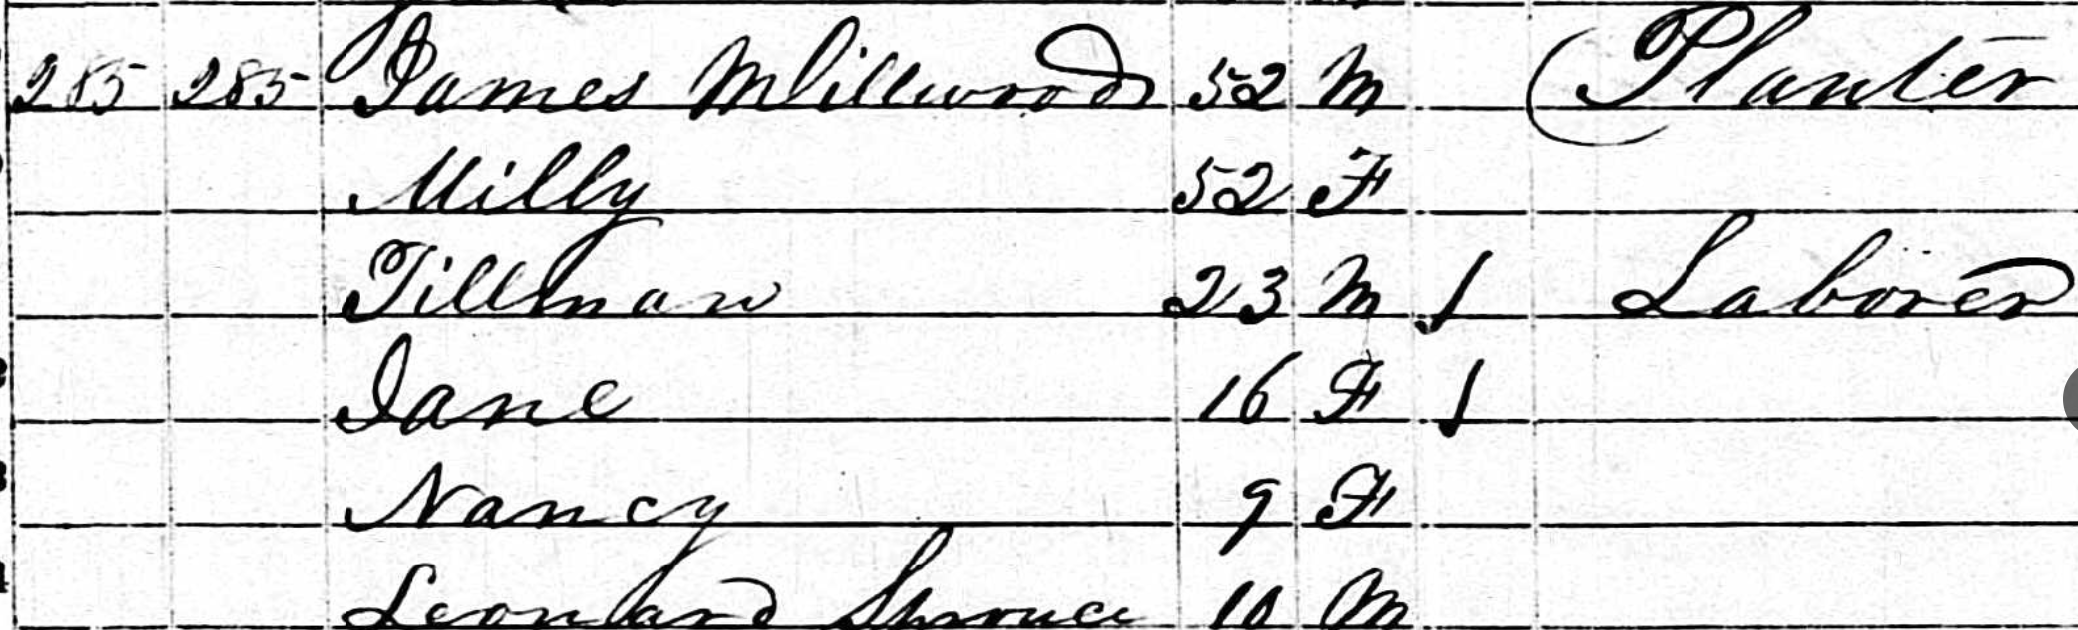 285 285 James Millwood 52 M Planter
Milly 52 F
Tillman 23 M / Laborer
Jane 16 F /
Nancy 9 F
Leonard 10 M